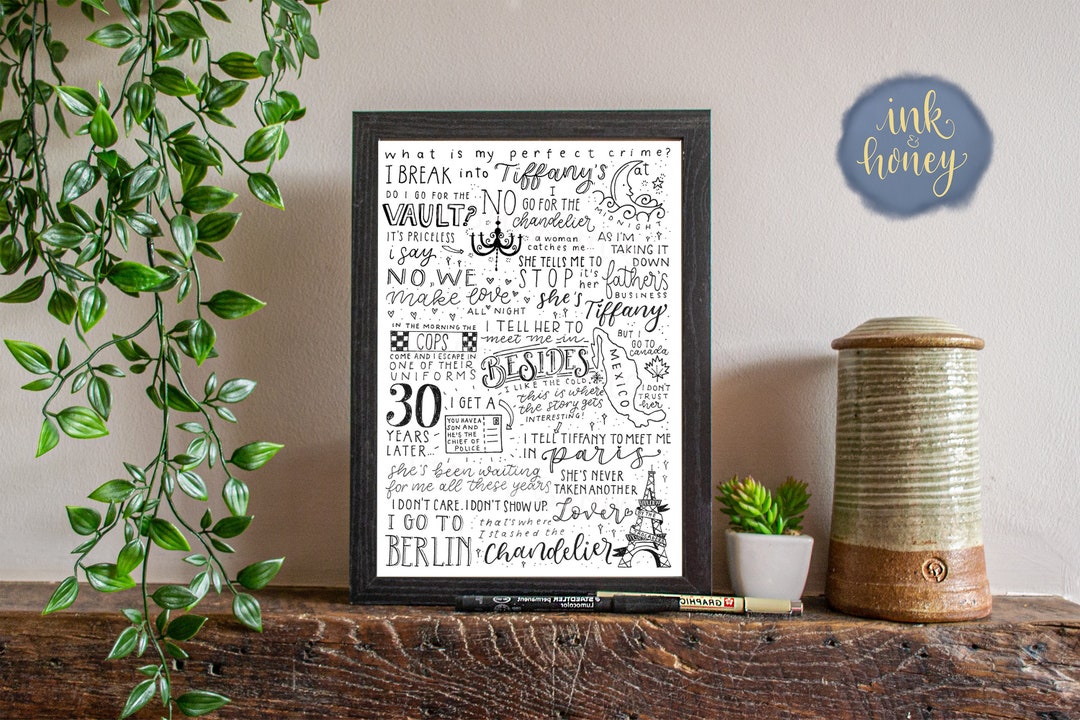 what is my perfect crime?
I BREAK into Tiffany's at
MIDNIGHT
DO I GO FOR THE
VAULT?
NO I
GO FOR THE
chandelier
IT'S PRICELESS
i say
a woman
catches me...
AS I'M
TAKING IT
DOWN
SHE TELLS ME TO
STOP it's
her father's
BUSINESS
NO, WE
make love
ALL NIGHT
she's
Tiffany
IN THE MORNING THE
COPS
COME AND I ESCAPE IN
ONE OF THEIR
UNIFORMS
I TELL HER TO
meet me in
MEXICO
BUT I
GO TO
canada
I DON'T
TRUST
her
BESIDES
I LIKE THE COLD.
this is where
the story gets
INTERESTING!
30
YEARS
LATER...
I GET A
YOU HAVE A
SON AND
HE'S THE
CHIEF OF
POLICE
I TELL TIFFANY TO MEET ME
IN paris
she's been waiting
for me all these years
SHE'S NEVER
TAKEN ANOTHER
Lover
I DON'T CARE. I DON'T SHOW UP.
I GO TO
BERLIN
that's where
I stashed the
chandelier
ink
&
honey
STAEDTLER permanent
Lumocolor
GRAPHIC